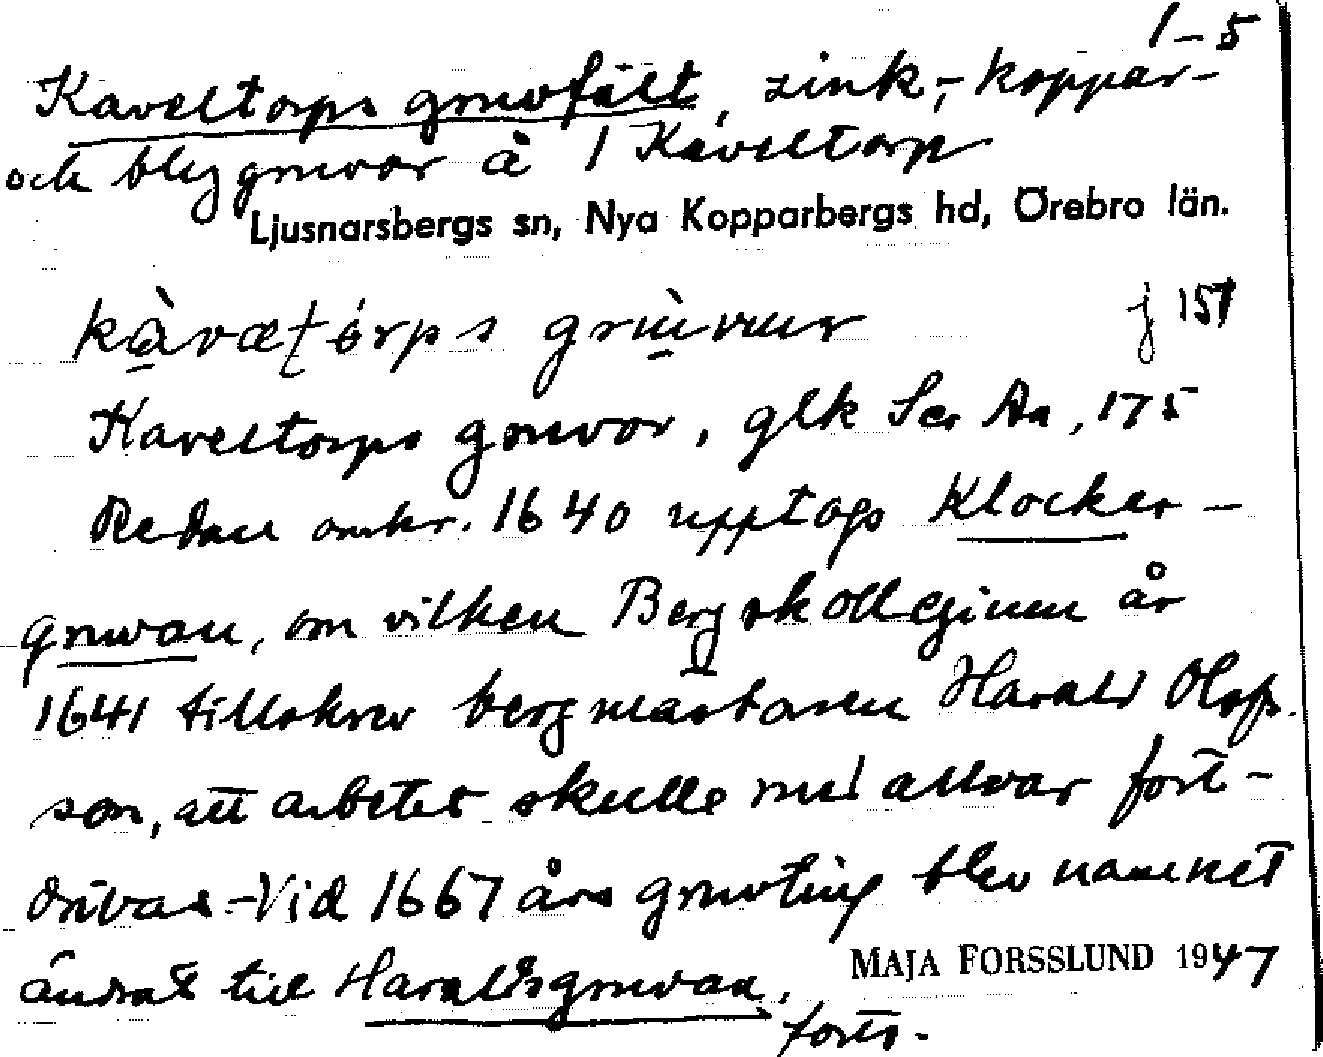 1-5
Kaveltorps gruvfält, zink-, koppar-
och blygruvor å 1 Kaveltorp
Ljusnarsbergs sn, Nya Kopparbergs hd, Örebro län.
j 151
Kaveltorps gruvor, glk Ser Aa, 175
Redan omkr. 1640 upptogs Klocker-
gruvan, om vilken Bergskollegium år
1641 tillskrev bergmästaren Harald Olofs-
son, att arbetet skulle med allvar fort-
drivas. - Vid 1667 års gruvting blev namnet
ändrat till Haraldsgruvan.
MAJA FORSSLUND 1947
forts.